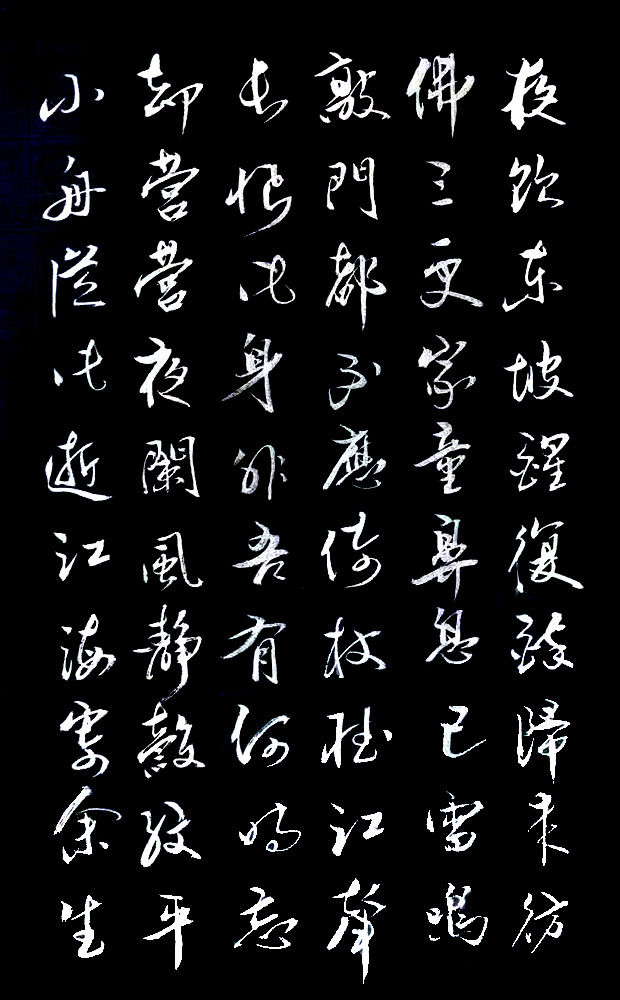 夜飲東坡醒復醉歸来彷
佛三更家童鼻息已雷鳴
敲門都不應倚杖聽江聲
長恨此身非吾有何時忘
却營營夜闌風靜縠紋平
小舟從此逝江海寄余生